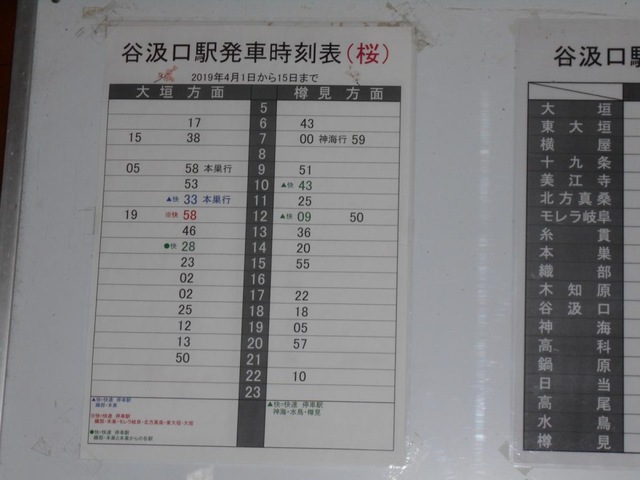 谷汲口駅発車時刻表(桜)
2019年4月1日から15日まで
大垣方面 樽見方面
5
17 6 43
15 38 7 00 神海行 59
8
05 58 本巣行 9 51
53 10 ▲快 43
▲快 33 本巣行 11 25
19 ※快 58 12 ▲快 09 50
46 13 36
●快 28 14 20
23 15 55
02 16
02 17 22
25 18 18
12 19 05
13 20 57
50 21
22 10
23
▲快=快速 停車駅
織部・本巣
※快=快速 停車駅
織部・本巣・モレラ岐阜・北方真桑・東大垣・大垣
●快=快速 停車駅
織部・本巣と本巣からの各駅
▲快=快速 停車駅
神海・水鳥・樽見
谷汲口
大垣
東大垣
横屋
十九条
美江寺
北方真桑
モレラ岐阜
糸貫
本巣
織部
木知原
谷汲口
神海
高科
鍋原
日当
高尾
水鳥
樽見